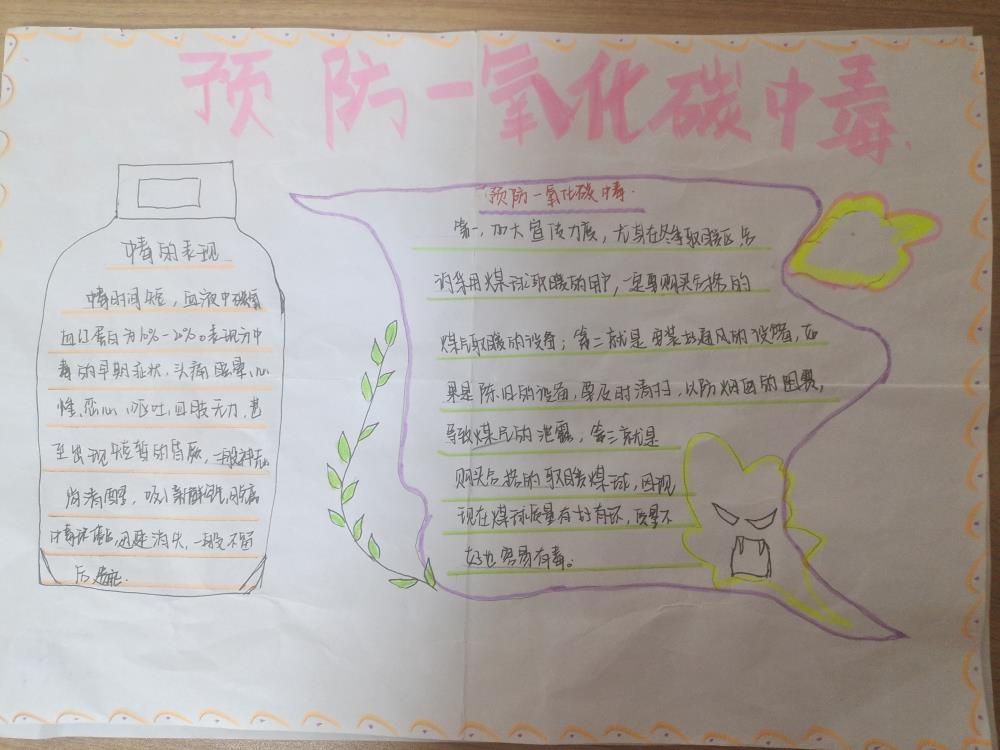 预防一氧化碳中毒
中毒的表现
中毒时间短，血液中碳氧
血红蛋白为10%-20%。表现为中
毒的早期症状，头痛眩晕、心
悸、恶心、呕吐、四肢无力，甚
至出现短暂的昏厥，一般神志
尚清醒，吸入新鲜空气，脱离
中毒环境后，迅速消失，一般不留
后遗症.
预防一氧化碳中毒.
第一，加大宣传力度，尤其在冬季取暖区后
用煤球取暖的用户，一定要购买合格的
煤气取暖的设备；第二就是安装通风的设备，如
果是陈旧的设备，要及时清扫，以防烟囱的困塞，
导致煤气的泄露；第三就是
购买合格的取暖煤球，因现
现在煤球质量有好有坏，质量不
好也容易有毒。